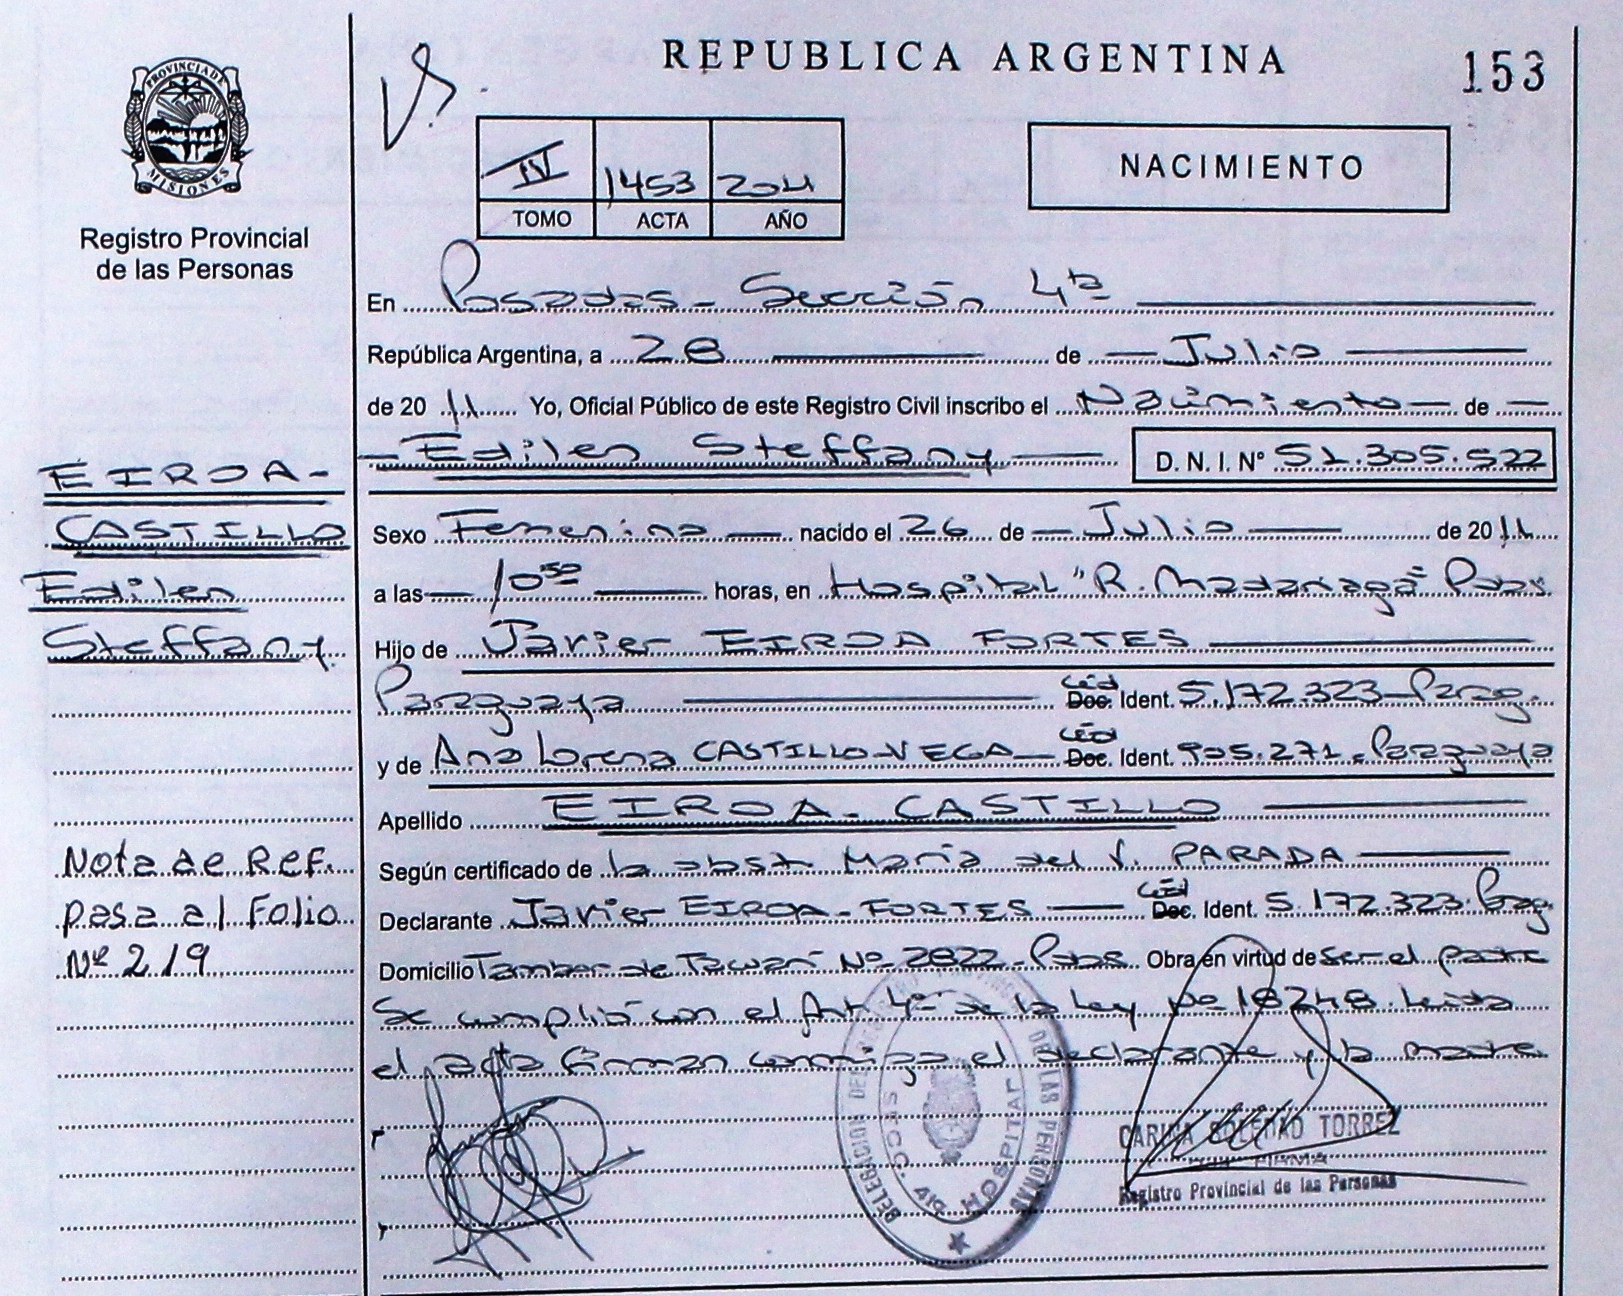 REPUBLICA ARGENTINA
153
PROVINCIA DE MISIONES
Registro Provincial
de las Personas
IV 1453 2011
TOMO ACTA AÑO
NACIMIENTO
En Posadas - Sección 4ta
República Argentina, a 28 de Julio
de 2011 Yo, Oficial Público de este Registro Civil inscribo el Nacimiento de
Edilen Steffany D. N. I. Nº 51.305.522
EIROA-
CASTILLO
Edilen
Steffany.
Sexo Femenino nacido el 26 de Julio de 2011
a las 10:50 horas, en Hospital "R. Madariaga" Pdas.
Hijo de Javier EIROA FORTES
Paraguaya Céd Doc. Ident. 5.172.323 Parag.
y de Ana Lorena CASTILLO-VEGA Céd Doc. Ident. 905.271. Paraguaya
Apellido EIROA - CASTILLO
Según certificado de la obst. María del V. PARADA
Declarante Javier EIROA-FORTES Céd Doc. Ident. 5.172.323. Parag.
Domicilio Tambor de Tacuarí Nº 2822 - Pdas Obra en virtud de ser el padre
Se cumplió con el Art. 4º de la Ley Nº 18248. Leída
el acta firman conmigo el declarante y la madre
Nota de Ref.
pasa al Folio
Nº 219
DELEGACION DEL REGISTRO PROVINCIAL DE LAS PERSONAS
SECC. 4ta HOSPITAL
CARINA SOLEDAD TORREZ
FIRMA
Registro Provincial de las Personas